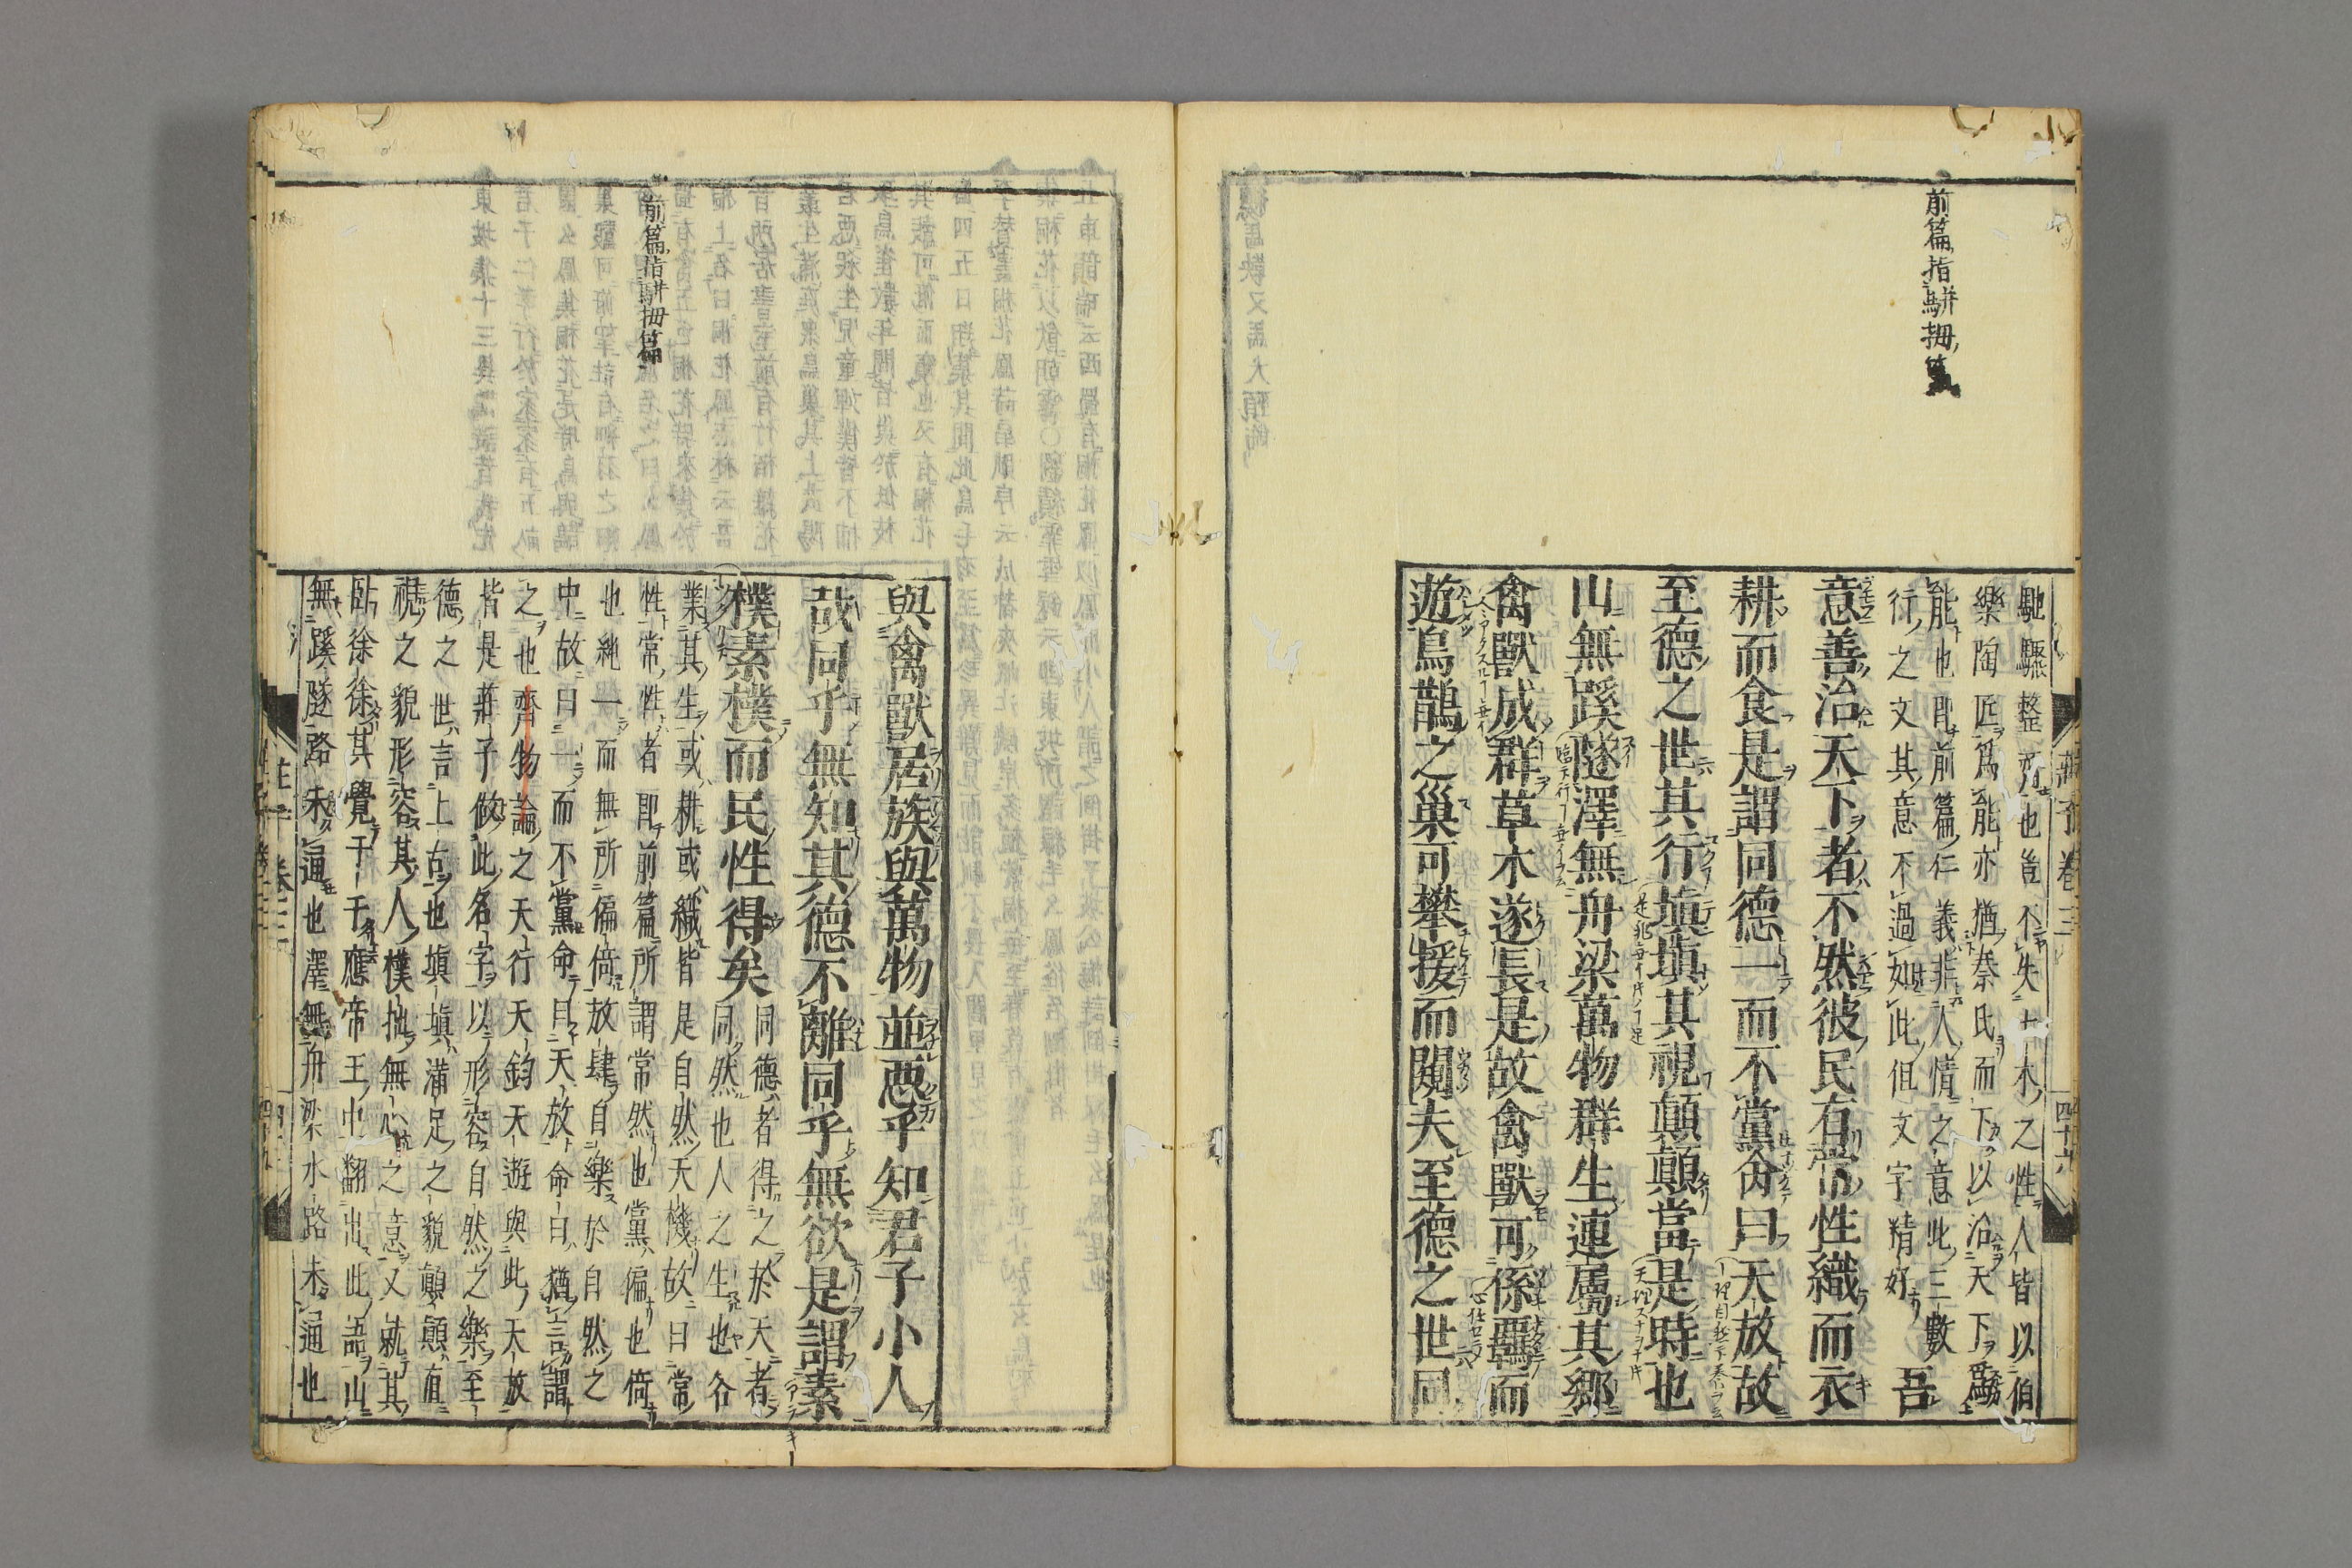 前篇指駢拇篇
馳驟整齊也豈不失土木之性人皆以伯
樂陶匠爲能亦猶泰氏而下以治天下爲
能也即前篇仁義非人情之意此三數
行之文其意不過如此但文字精好
吾
意善治天下者不然彼民有常性織而衣
耕而食是謂同德一而不黨命曰天放故
至德之世其行塡塡其視顚顚當是時也
山無蹊隧澤無舟梁萬物群生連屬其鄕
禽獸成群草木遂長是故禽獸可係羈而
遊鳥鵲之巢可攀援而闚夫至德之世同
莊子卷三
四十六
前篇指駢拇篇
與禽獸居族與萬物並惡乎知君子小人
哉同乎無知其德不離同乎無欲是謂素
樸素樸而民性得矣
同德者得之於天者
同然也人之生也各
業其生或耕或織皆是自然天機故曰常
性常性者即前篇所謂常然也黨偏也倚
也純一而無所偏倚放肆自樂於自然之
中故曰一而不黨命曰天放命曰猶言謂
之也齊物論之天行天鈞天遊與此天放
皆是莊子做此名字以形容自然之樂至
德之世言上古也塡塡滿足之貌顚顚直
視之貌形容其人樸拙無心之意又就其
臥徐徐其覺于于應帝王中翻出此語山
無蹊隧路未通也澤無舟梁水路未通也